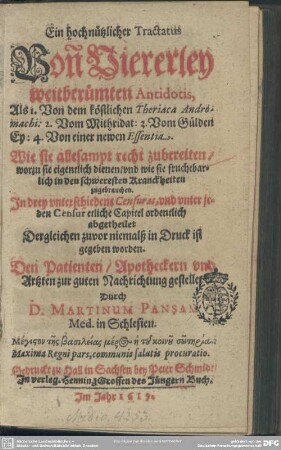 Ein hochnützlicher Tractatus
Von Viererley
weitberümten Antidotis,
Als 1. Von dem köstlichen Theriaca Andro-
machi: 2. Vom Mithridat: 3. Vom Gülden
Ey: 4. Von einer newen Essentia.
Wie sie allesampt recht zubereiten/
worzu sie eigentlich dienen/vnd wie sie fruchtbar-
lich in den schweresten Kranckheiten
zugebrauchen.
In drey vnterschiedene Censuras, vnd vnter je-
den Censur etliche Capitel ordentlich
abgetheilet
Dergleichen zuvor niemalß in Druck ist
gegeben worden.
Den Patienten/Apotheckern vnd
Artzten zur guten Nachrichtung gestellet
Durch
D. MARTINUM PANSAM
Med. in Schlesien.
Μέγιστον τῆς βασιλείας
Maxima Regni pars, communis salutis procuratio.
Gedruckt zu Hall in Sachsen bey Peter Schmidt/
In verlag. Henning Grossen des Jüngern Buch.
Im Jahr 1619.
DFG